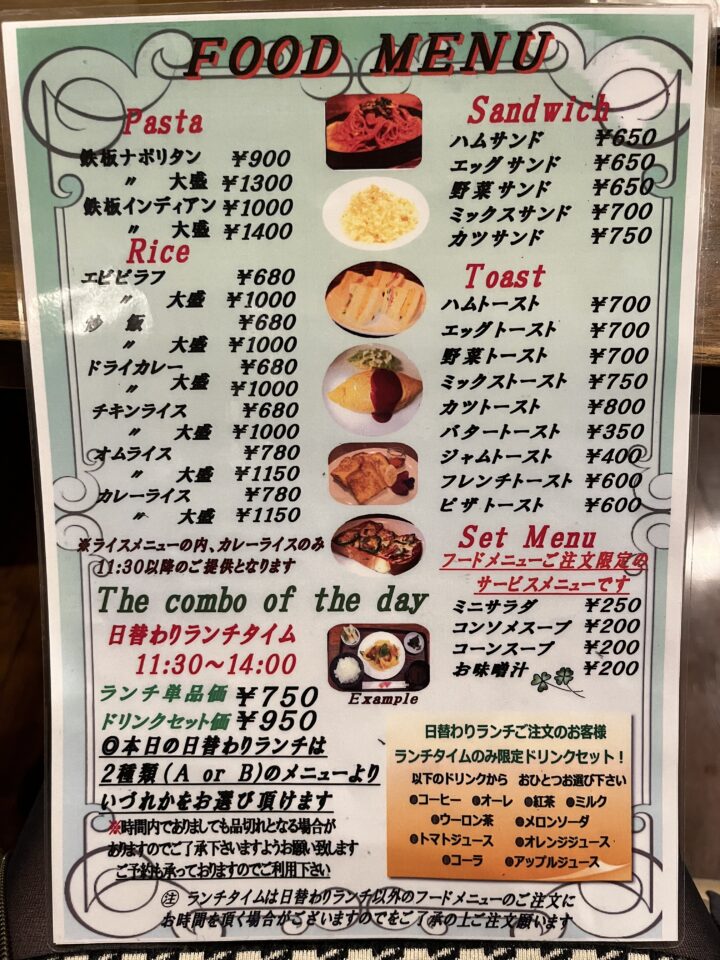 FOOD MENU
Pasta
鉄板ナポリタン ¥900
〃 大盛 ¥1300
鉄板インディアン ¥1000
〃 大盛 ¥1400
Rice
エビピラフ ¥680
〃 大盛 ¥1000
炒 飯 ¥680
〃 大盛 ¥1000
ドライカレー ¥680
〃 大盛 ¥1000
チキンライス ¥680
〃 大盛 ¥1000
オムライス ¥780
〃 大盛 ¥1150
カレーライス ¥780
〃 大盛 ¥1150
※ライスメニューの内、カレーライスのみ
11:30以降のご提供となります
Sandwich
ハムサンド ¥650
エッグサンド ¥650
野菜サンド ¥650
ミックスサンド ¥700
カツサンド ¥750
Toast
ハムトースト ¥700
エッグトースト ¥700
野菜トースト ¥700
ミックストースト ¥750
カツトースト ¥800
バタートースト ¥350
ジャムトースト ¥400
フレンチトースト ¥600
ピザトースト ¥600
Set Menu
フードメニューご注文限定の
サービスメニューです
ミニサラダ ¥250
コンソメスープ ¥200
コーンスープ ¥200
お味噌汁 ¥200
The combo of the day
日替わりランチタイム
11:30～14:00
ランチ単品価 ¥750
ドリンクセット価 ¥950
Example
◎本日の日替わりランチは
2種類(A or B)のメニューより
いづれかをお選び頂けます
※時間内でありましても品切れとなる場合が
ありますのでご了承下さいますようお願い致します
ご予約も承っておりますのでご利用下さい
日替わりランチご注文のお客様
ランチタイムのみ限定ドリンクセット!
以下のドリンクから おひとつお選び下さい
●コーヒー ●オーレ ●紅茶 ●ミルク
●ウーロン茶 ●メロンソーダ
●トマトジュース ●オレンジジュース
●コーラ ●アップルジュース
㊟ ランチタイムは日替わりランチ以外のフードメニューのご注文に
お時間を頂く場合がございますのでをご了承の上ご注文願います